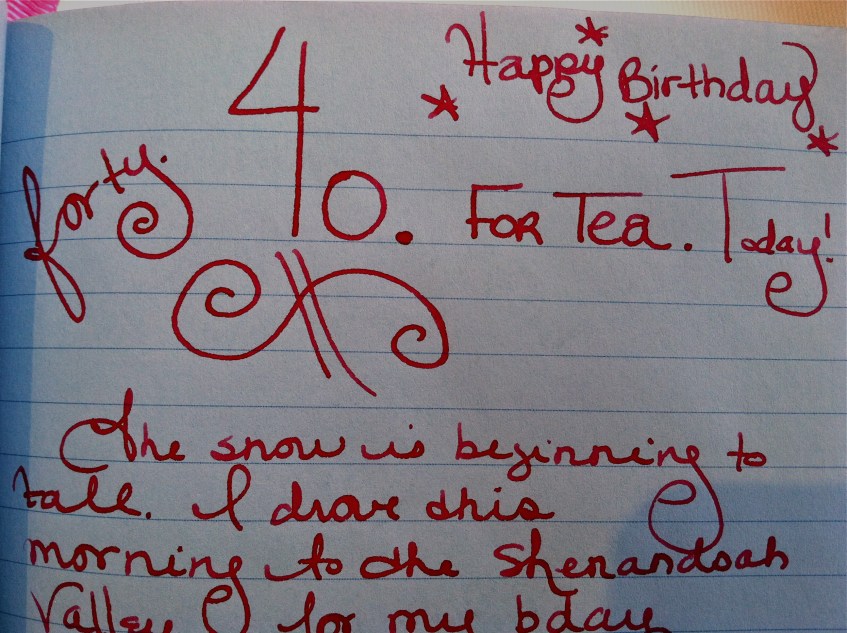 Happy Birthday
40.
forty.
FOR Tea. Today!
The snow is beginning to
fall. I drove this
morning to the Shenandoah
Valley for my bday